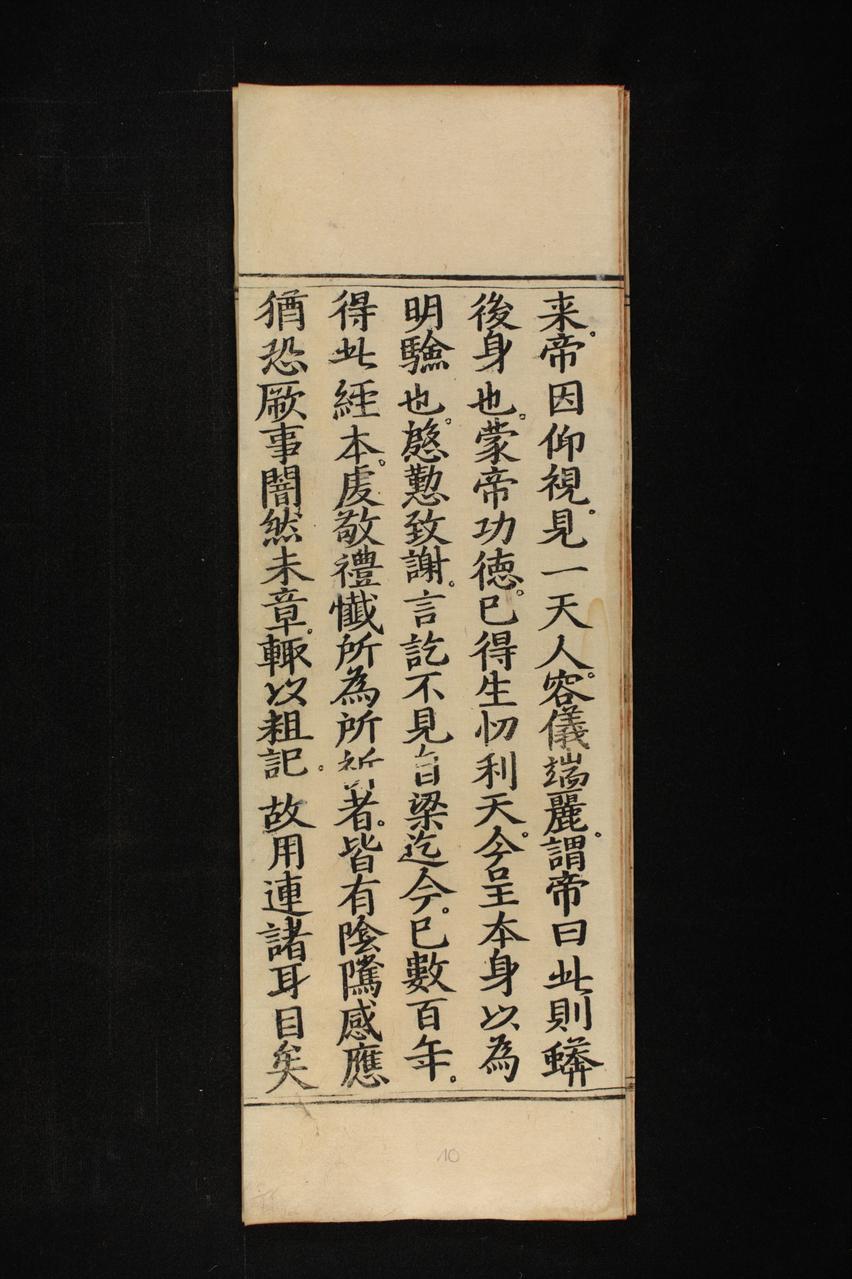 来。帝因仰視。見一天人。容儀端麗。謂帝曰此則蟒
後身也。蒙帝功徳。已得生忉利天。今呈本身以為
明驗也。慇懃致謝。言訖不見自梁迄今。已數百年。
得此經本。虔敬禮懺所為所祈者。皆有陰隲感應
猶恐厥事闇然未章。輙以粗記。故用連諸耳目矣
10